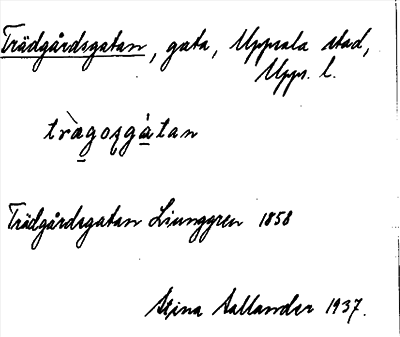 Trädgårdsgatan, gata, Uppsala stad,
Upps. l.
trä̀gosgátan
Trädgårdsgatan Ljunggren 1858
Stina Sallander 1937.